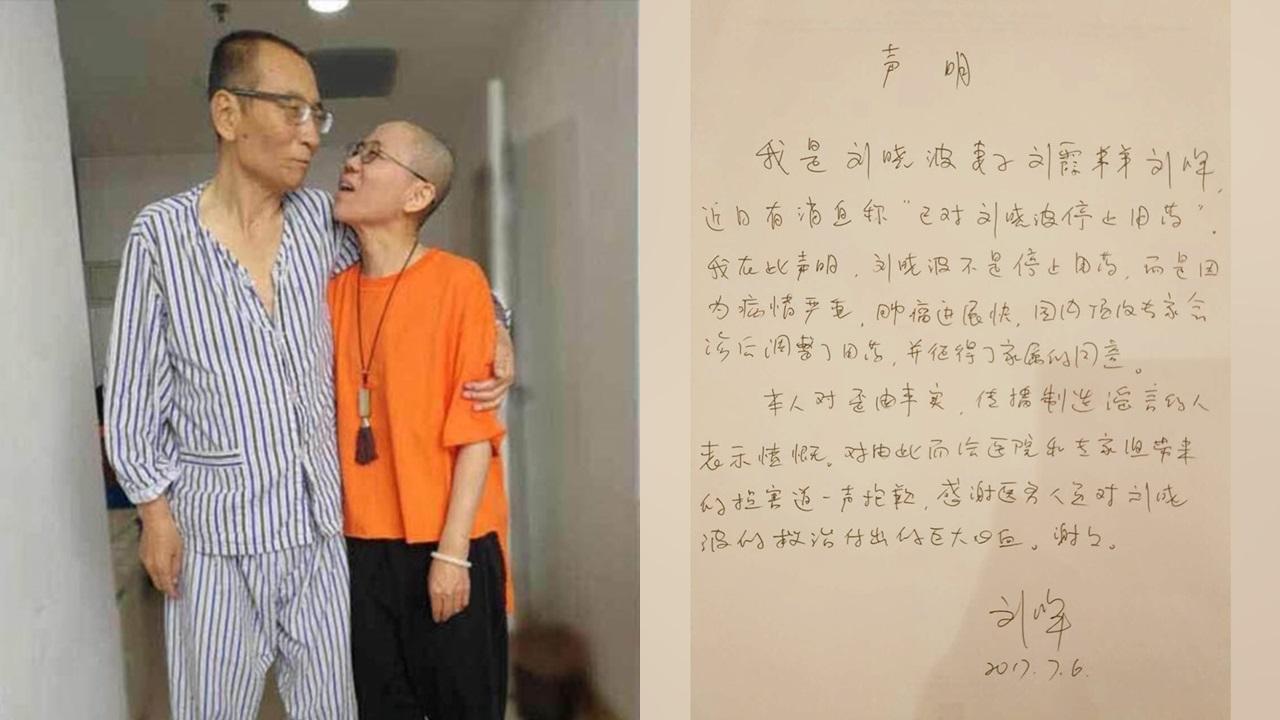 声 明
我是刘晓波妻子刘霞弟弟刘晖，
近日有消息称“已对刘晓波停止用药”。
我在此声明，刘晓波不是停止用药，而是因
为病情严重，肿瘤进展快，国内顶级专家会
诊后调整了用药，并征得了家属的同意。
本人对歪曲事实，传播制造谣言的人
表示愤慨。对由此而给医院和专家组带来
的损害道一声抱歉，感谢医务人员对刘晓
波的救治付出的巨大心血。谢谢。
刘晖
2017.7.6.